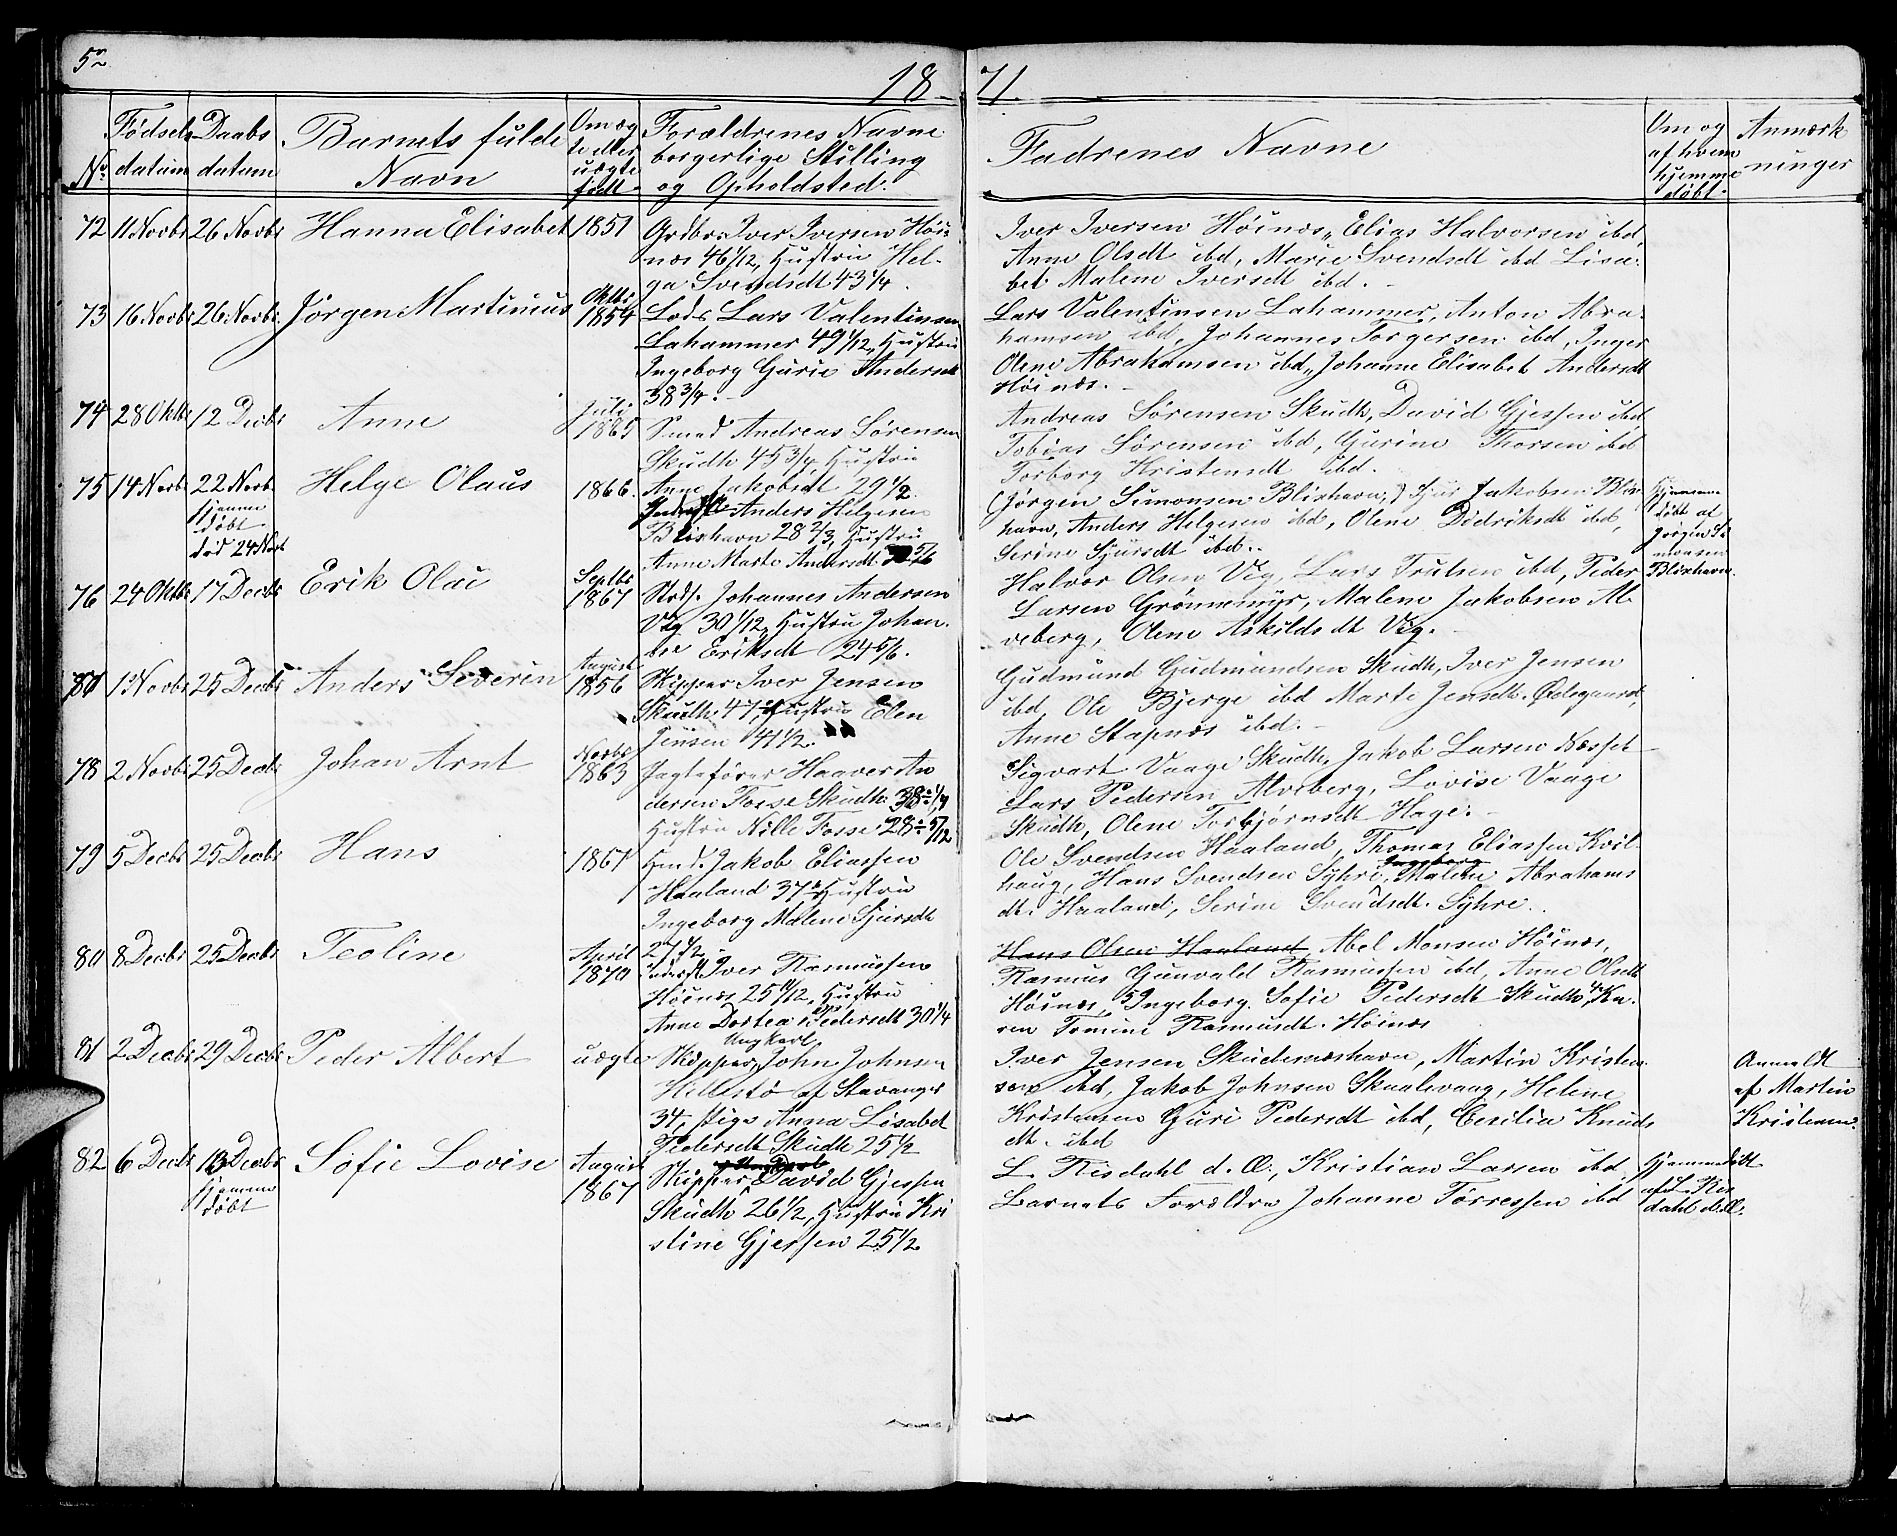 52
18 71.
No.
Fødsels
datum
Daabs
datum
Barnets fulde
Navn
Om æg
te eller
uægte
født.
Forældrenes Navne
borgerlige Stilling
og Opholdsted.
Fadrenes Navne
Om og
af hvem
hjemme
døbt.
Anmærk
ninger
72 11 Novbr 26 Novbr Hanna Elisabet 1851
Grdbr. Iver Iversen Høi
næs 46 1/12, Hustru Hel-
ga Svendsdt 43 1/4.
Iver Iversen Høinæs, Elias Halvorsen ibd,
Anne Olsdt ibd, Marie Svendsdt ibd Lisa
bet Malene Iversdt ibd. -
73 16 Novbr 26 Novbr. Jørgen Martinius Oktbr 1854
Lods Lars Valentinsen
Lahammer 49 1/12, Hustru
Ingeborg Gurie Andersdt
38 3/4. -
Lars Valentinsen Lahammer, Anton Abra-
hamsen ibd, Johannes Torgersen ibd, Inger
Olene Abrahamsen ibd, Johanne Elisabet Andersdt
Høinæs. -
74 28 Oktbr 12 Decbr Anne Juli 1865
Smed Andreas Sørensen
Skudh 45 3/4, Hustru
Anne Jakobsdt 29 1/2.
Andreas Sørensen Skudh, David Gjessen ibd,
Tobias Sørensen ibd, Gurine Thorsen ibd
Torborg Kristensdt ibd.
75 14 Novbr 22 Novb. Helge Olaus 1866.
hjemme
døbt
død 24 Novbr
Anders Helgesen
Blixhavn 28 2/3, Hustru
Anne Marte Andersdt 5/6
(Jørgen Simonsen Blixhavn,) Sjur Jakobsen Blix
havn, Anders Helgesen ibd, Olene Didriksdt ibd,
Serine Sjursdt ibd..
Hjemme
døbt af
Jørgen Si
monsen
Blixhavn.
76 24 Oktbr 17 Decbr Erik Olai Septbr 1867
Strds. Johannes Andersen
Vig 30 1/12, Hustru Johan-
ne Eriksdt 24 5/6.
Halvor Olsen Vig, Lars Trulsen ibd, Peder
Larsen Grønnemyr, Malene Jakobsen Al
veberg, Olene Askildsdt Vig. -
1 Novbr 25 Decbr Anders Severin August 1856
Skipper Iver Jensen
Skudh. 47, Hustru Elen
Jensen 41 1/2.
Gudmund Gudmundsen Skudh, Iver Jensen
ibd, Ole Bjerge ibd Marte Jensdt. Ødegaard,
Anne Stapnes ibd. -
78 2 Novbr 25 Decbr Johan Arnt Novbr 1863
Jagtefører Haaver An
dersen Fosse Skudh. 38 1/4
Hustru Nille Fosse 28 5/12
Sigvart Vaage Skudh, Jakob Larsen Næsset
Lars Pedersen Alveberg, Lovise Vaage
Skudh, Olene Torbjørnsdt Hage. -
79 5 Decbr 25 Decbr Hans 1867
Hmd. Jakob Eliassen
Haaland 37 Hustru
Ingeborg Malene Sjursdt
27 1/2
Ole Svendsen Haaland, Thomas Eliassen Kvil
haug, Hans Svendsen Syhre, Ingeborg Malene Abrahams
dt. Haaland, Serine Svendsdt. Syhre..
80 8 Decbr 25 Decbr Teoline April 1870
Iver Rasmussen
Høinæs 25 11/12, Hustru
Anne Dortea Pedersdt 30 1/4
Hans Olsen Haaland, Abel Monsen Høinæs,
Rasmus Gunvald Rasmussen ibd, Anne Olsdt
Høinæs, Ingeborg Sofie Pedersdt Skudh, Ka-
ren Tomine Rasmusdt. Høinæs
81 2 Decbr 29 Decbr Peder Albert uægte
Ungkarl
Skipper, John Johnsen
Hillestø af Stavanger
34, Pige Anna Lisabet
Pedersdt Skudh 25 1/2
Iver Jensen Skudesneshavn, Martin Kristen
sen ibd, Jakob Johnsen Skaalevaag, Helene
Kristensen Guri Pedersdt ibd, Cecilia Knuds
dt. ibd
Anmeldt
af Martin
Kristensen.
82 6 Decbr 13 Decbr Sofie Lovise August 1867
hjemme
døbt
Skipper, David Gjessen
Skudh 26 1/2, Hustru Kri
stine Gjessen 25 1/2
L. Risdahl d. Æ., Kristian Larsen ibd,
Barnets Forældre Johanne Torressen ibd
Hjemmedøbt
af L. Ris
dahl d. Æ.